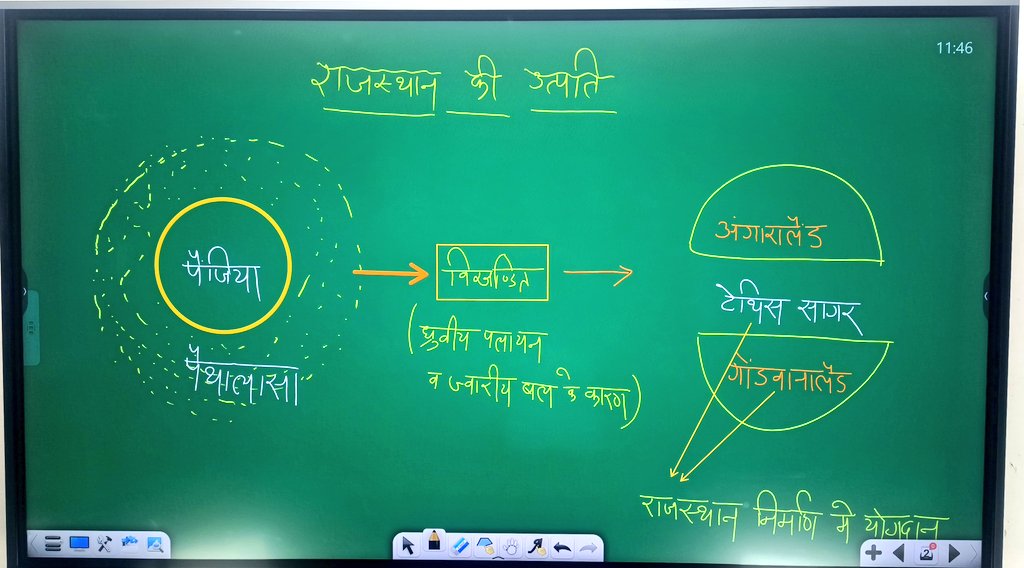 11:46
राजस्थान की उत्पति
पैंजिया
पैंथालासा
विखण्डित
(ध्रुवीय पलायन
व ज्वारीय बल के कारण)
अंगारालैंड
टेथिस सागर
गोंडवानालैंड
राजस्थान निर्माण मे योगदान
2